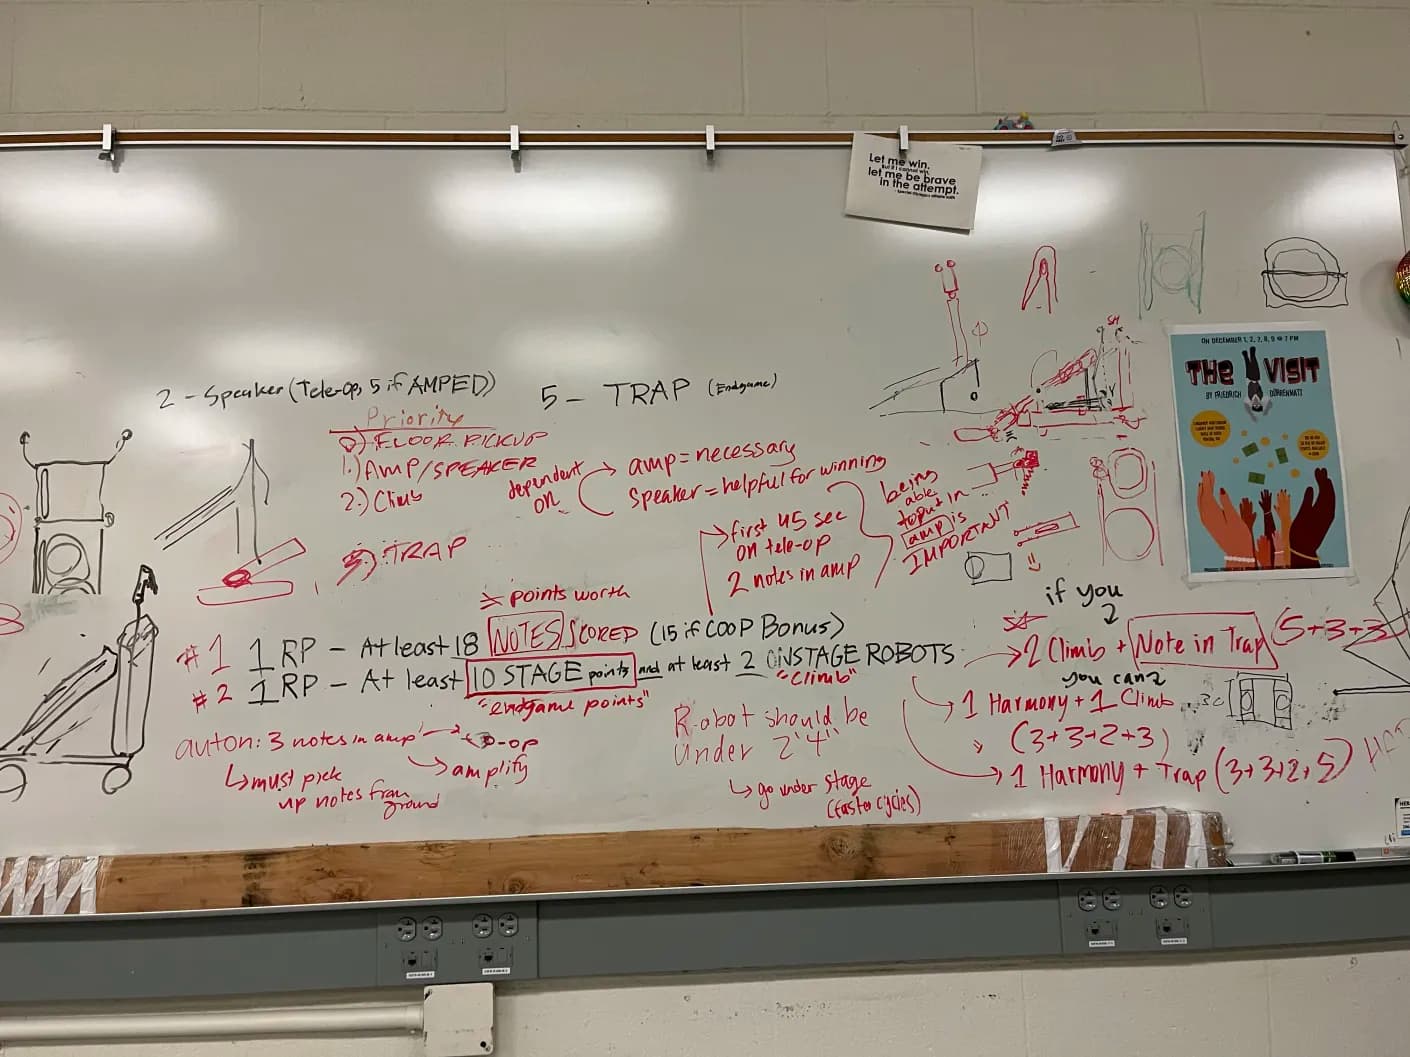 Let me win,
But if I cannot win,
let me be brave
in the attempt.
2 - Speaker (Tele-op, 5 if AMPED)
5 - TRAP (Endgame)
Priority
0.) FLOOR PICKUP
1.) AMP/SPEAKER
2.) Climb
3.) TRAP
dependent on
amp = necessary
Speaker = helpful for winning
first 45 sec
on tele-op
2 notes in amp
being
able
to put in
amp is
IMPORTANT
points worth
#1 1 RP - At least 18 NOTES SCORED (15 if COOP Bonus)
#2 1 RP - At least 10 STAGE points and at least 2 ONSTAGE ROBOTS
"endgame points"
"climb"
auton: 3 notes in amp
co-op
amplify
must pick
up notes from
ground
Robot should be
under 2'4"
go under stage
(faster cycles)
if you
2
2 Climb + Note in Trap (5+3+3
you can2
1 Harmony + 1 Climb
(3+3+2+3)
1 Harmony + Trap (3+3+2+5)
5H
ON DECEMBER 1, 2, 7, 8, 9 @ 7 PM
THE VISIT
BY FRIEDRICH DÜRRENMATT